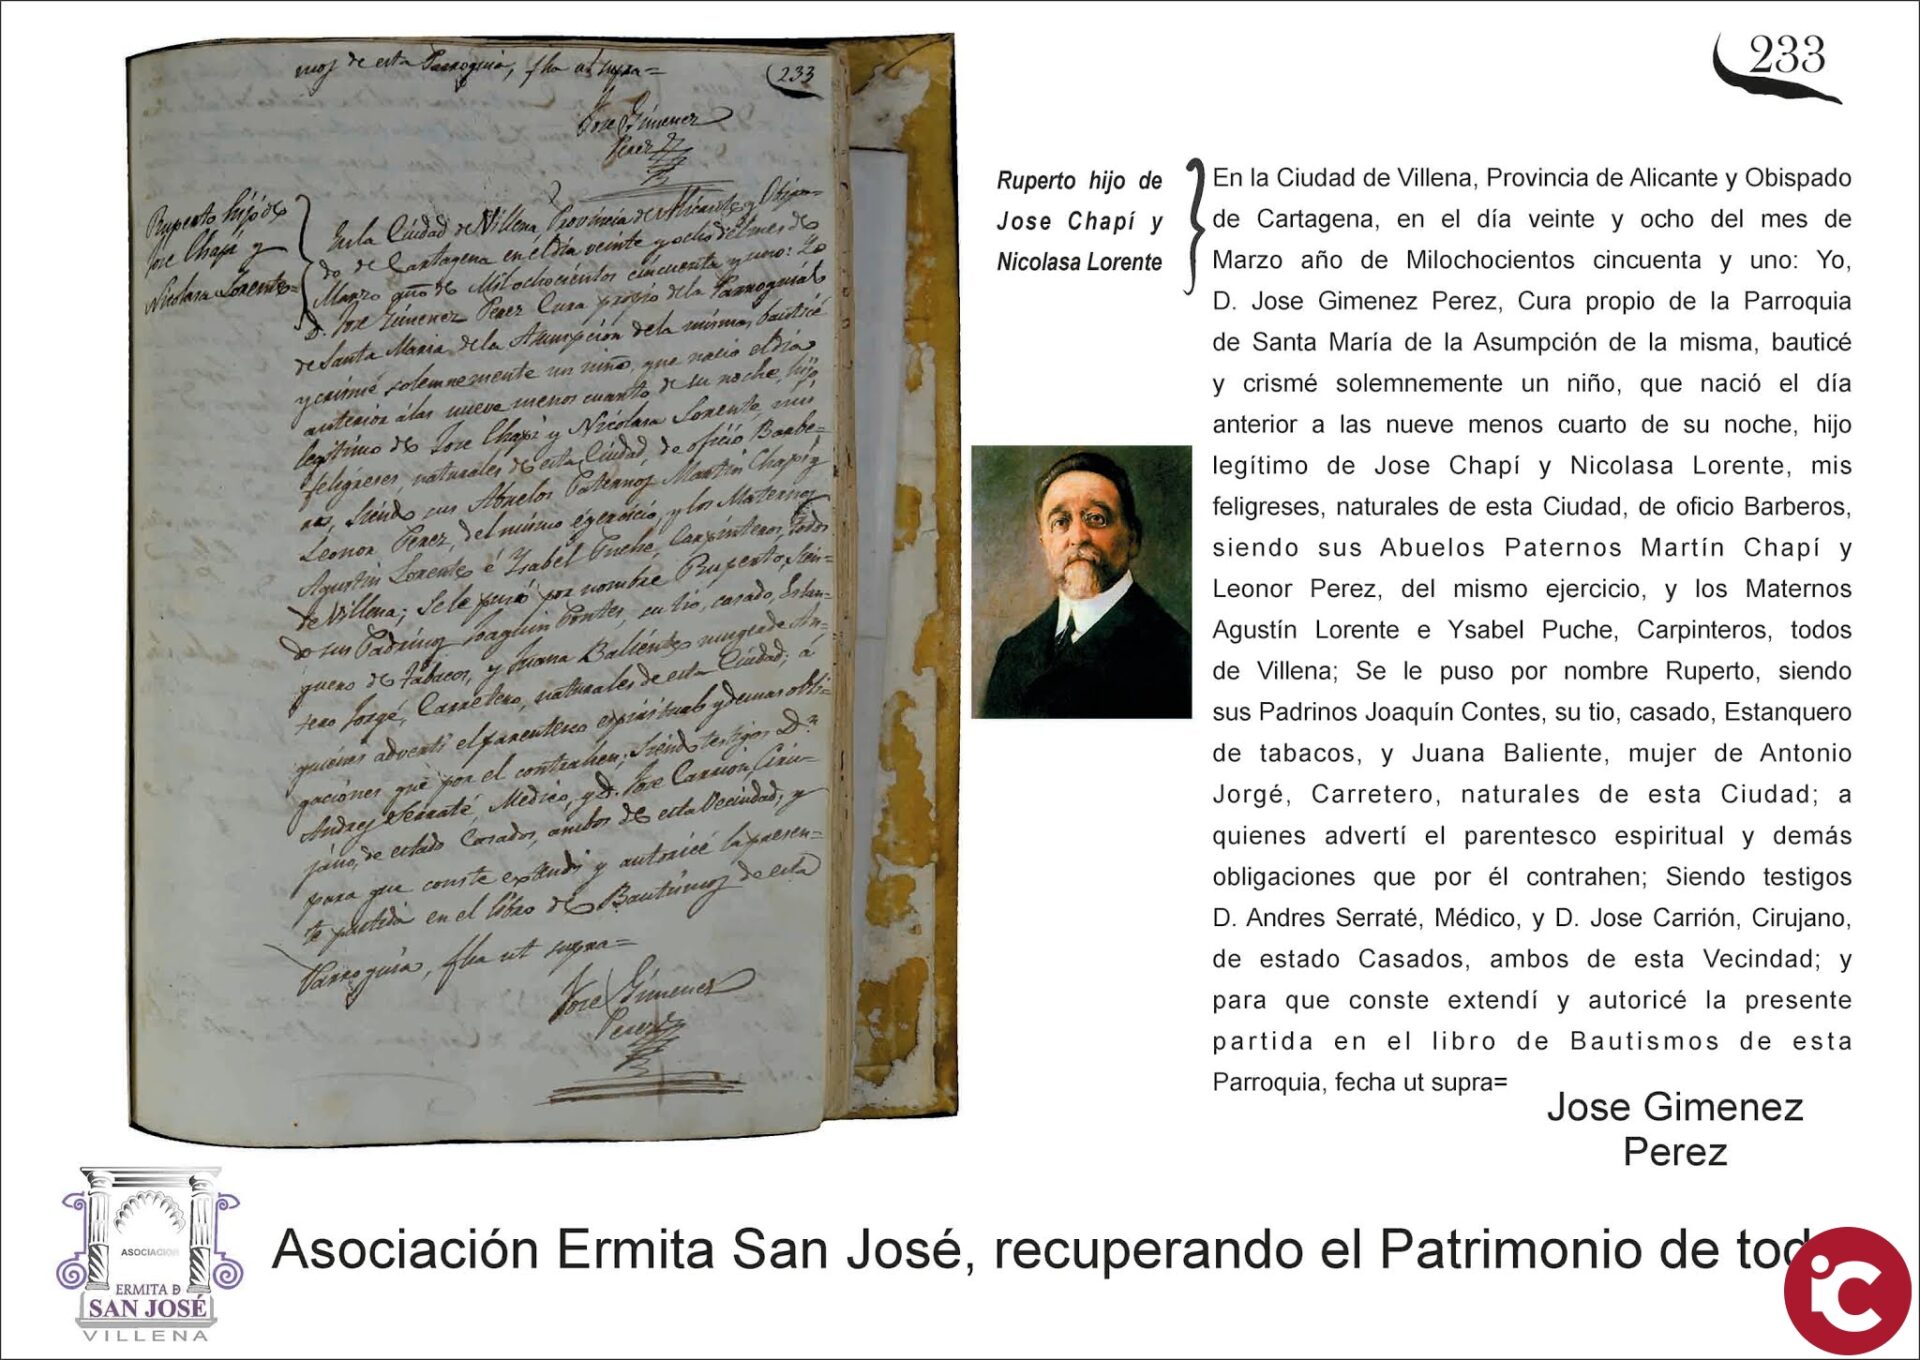 mos de esta Parroquia, fha ut supra=
(233
Jose Gimenez
Perez
Ruperto hijo de
Jose Chapi y
Nicolasa Lorente=
En la Ciudad de Villena, Provincia de Alicante y Obispa=
do de Cartagena en el dia veinte y ocho del mes de
Marzo año de Milochocientos cincuenta y uno: Yo
D. Jose Gimenez Perez Cura propio de la Parroquial
de Santa Maria de la Asumpcion de la misma, bauticé
y crismé solemnemente un niño, que nacio el dia
anterior á las nueve menos cuarto de su noche, hijo
legitimo de Jose Chapi y Nicolasa Lorente, mis
feligreses, naturales de esta Ciudad, de oficio Barbe=
ros, siendo sus Abuelos Paternos Martin Chapi y
Leonor Perez, del mismo egercicio, y los Maternos
Agustin Lorente é Ysabel Puche, Carpinteros, todos
de Villena; Se le puso por nombre Ruperto, sien=
do sus Padrinos Joaquin Contes, su tio, casado, Estan=
quero de tabacos, y Juana Baliente muger de An=
tonio Jorgé, Carretero, naturales de esta Ciudad; á
quienes adverti el parentesco espiritual y demas obli=
gaciones que por el contrahen; Siendo testigos Dn
Andres Serraté, Medico, y D. Jose Carrion, Ciru=
jano, de estado Casados, ambos de esta Vecindad; y
para que conste extendi y autoricé la presen=
te partida en el libro de Bautismos de esta
Parroquia, fha ut supra=
Jose Gimenez
Perez
233
Ruperto hijo de
Jose Chapí y
Nicolasa Lorente
En la Ciudad de Villena, Provincia de Alicante y Obispado
de Cartagena, en el día veinte y ocho del mes de
Marzo año de Milochocientos cincuenta y uno: Yo,
D. Jose Gimenez Perez, Cura propio de la Parroquia
de Santa María de la Asumpción de la misma, bauticé
y crismé solemnemente un niño, que nació el día
anterior a las nueve menos cuarto de su noche, hijo
legítimo de Jose Chapí y Nicolasa Lorente, mis
feligreses, naturales de esta Ciudad, de oficio Barberos,
siendo sus Abuelos Paternos Martín Chapí y
Leonor Perez, del mismo ejercicio, y los Maternos
Agustín Lorente e Ysabel Puche, Carpinteros, todos
de Villena; Se le puso por nombre Ruperto, siendo
sus Padrinos Joaquín Contes, su tio, casado, Estanquero
de tabacos, y Juana Baliente, mujer de Antonio
Jorgé, Carretero, naturales de esta Ciudad; a
quienes advertí el parentesco espiritual y demás
obligaciones que por él contrahen; Siendo testigos
D. Andres Serraté, Médico, y D. Jose Carrión, Cirujano,
de estado Casados, ambos de esta Vecindad; y
para que conste extendí y autoricé la presente
partida en el libro de Bautismos de esta
Parroquia, fecha ut supra=
Jose Gimenez
Perez
ASOCIACION
ERMITA D
SAN JOSÉ
VILLENA
Asociación Ermita San José, recuperando el Patrimonio de tod
iC